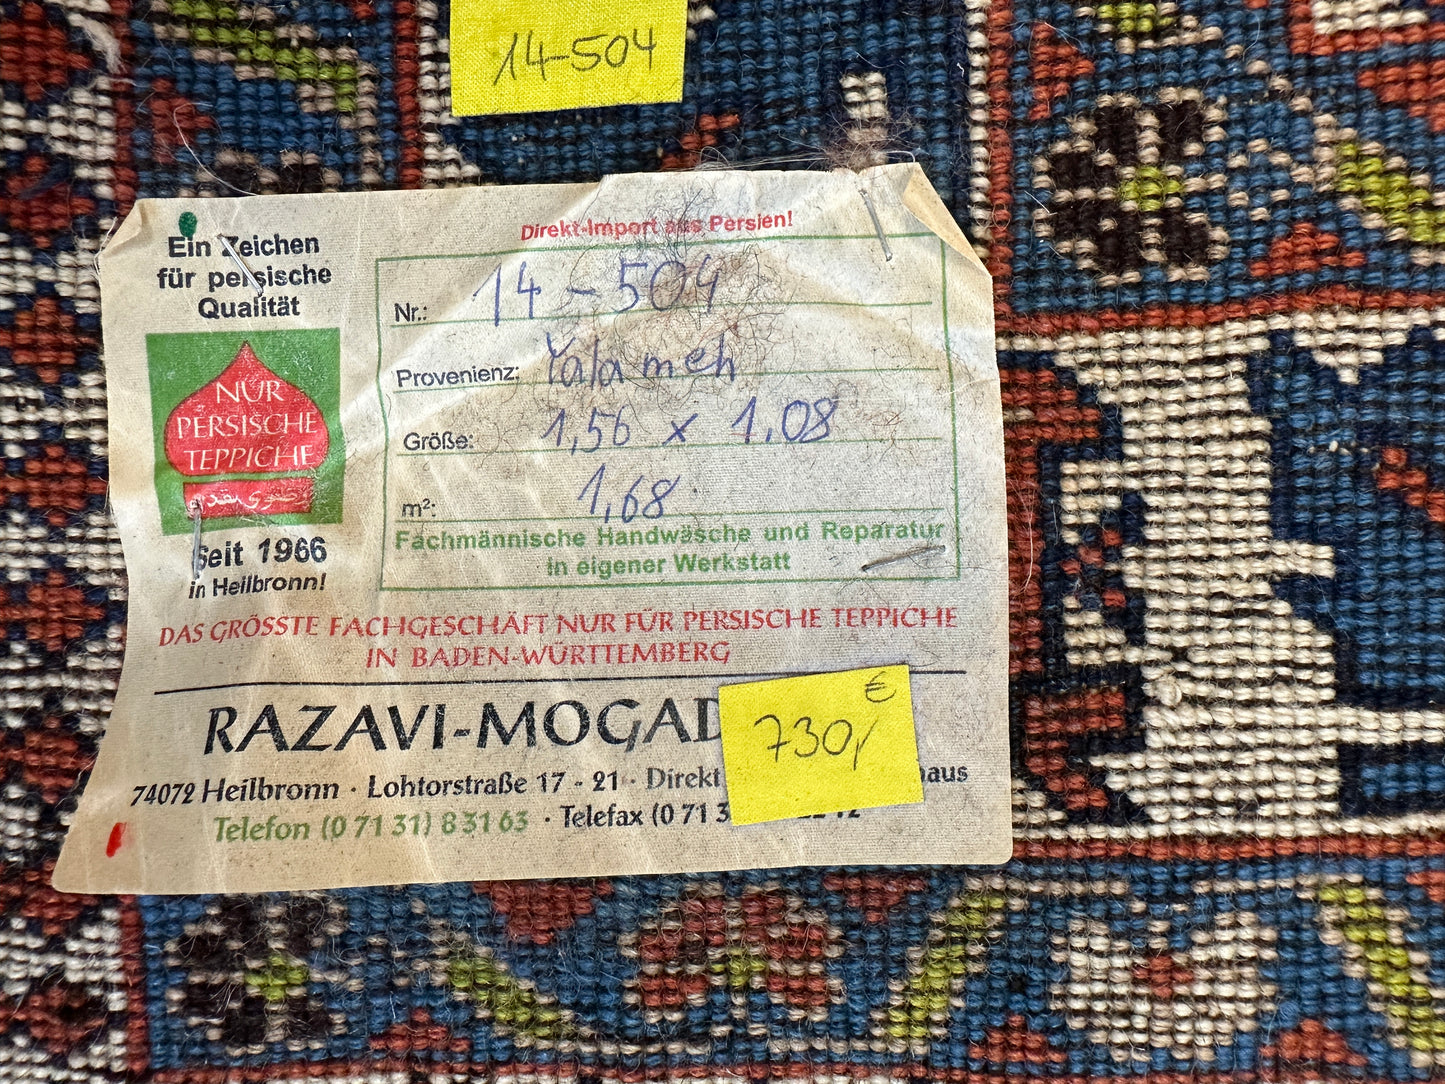 14-504
Direkt-Import aus Persien!
Ein Zeichen
für persische
Qualität
NUR
PERSISCHE
TEPPICHE
Seit 1966
in Heilbronn!
Nr.: 14-504
Provenienz: Yalameh
Größe: 1,56 x 1,08
m²: 1,68
Fachmännische Handwäsche und Reparatur
in eigener Werkstatt
DAS GRÖSSTE FACHGESCHÄFT NUR FÜR PERSISCHE TEPPICHE
IN BADEN-WÜRTTEMBERG
RAZAVI-MOGAD
730,- €
74072 Heilbronn · Lohtorstraße 17 - 21 · Direkt haus
Telefon (0 71 31) 8 31 63 · Telefax (0 71 3